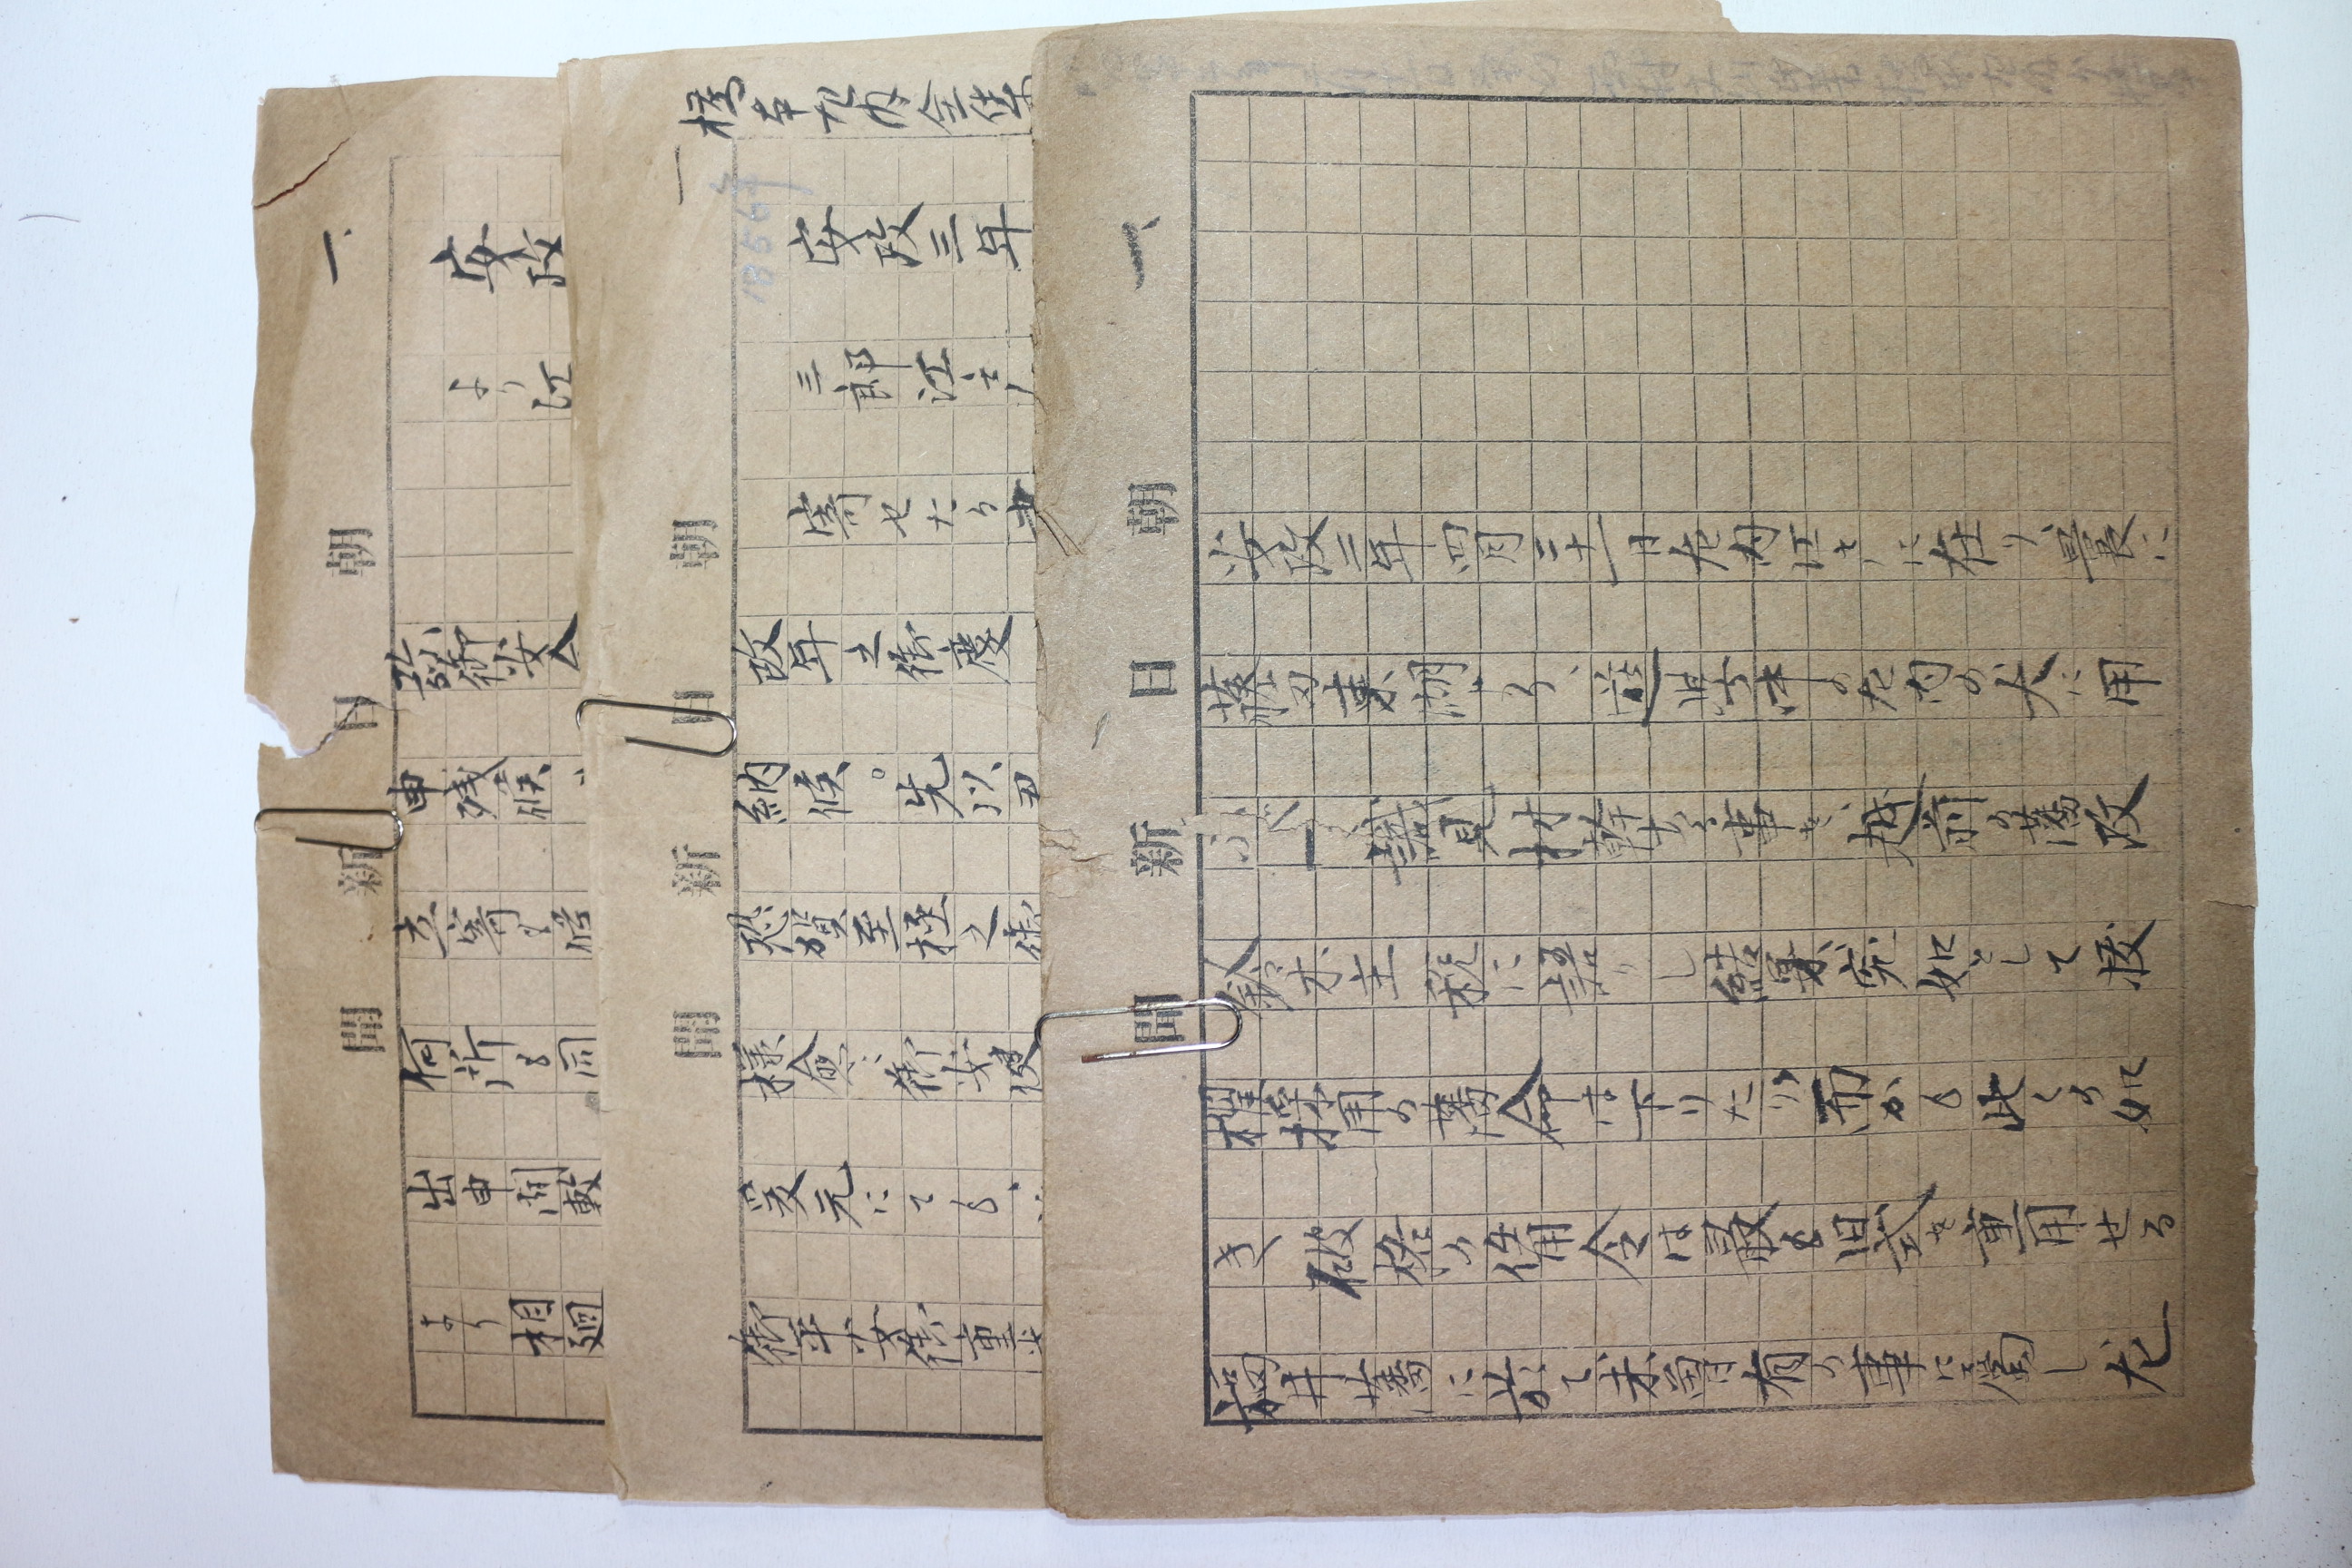 一、
朝日新聞
安政
より江
弥御安全
申残候、
立寄も
何所も同
出申間敷
より相廻
一
朝日新聞
橋本左内全集
1856年
安政三年
三郎江戸
寄せたる書
改年之御慶
納候。先以
恐賀至極之御
様愈々御安健
爰元にても、
御平安御重
一、
朝日新聞
安政三年四月二十一日左内江戸に在り、曩に
藤田東湖より、遊学中の左内の大に用
ふべく識見材幹ある事を、越前の藩政
鈴木主税に語りし結果、突如として抜
擢採用の藩命は下りたり、而かも此くの如
き破格の任用令は最も旧式を重用せる
福井藩に於て未曽有の事に属し左